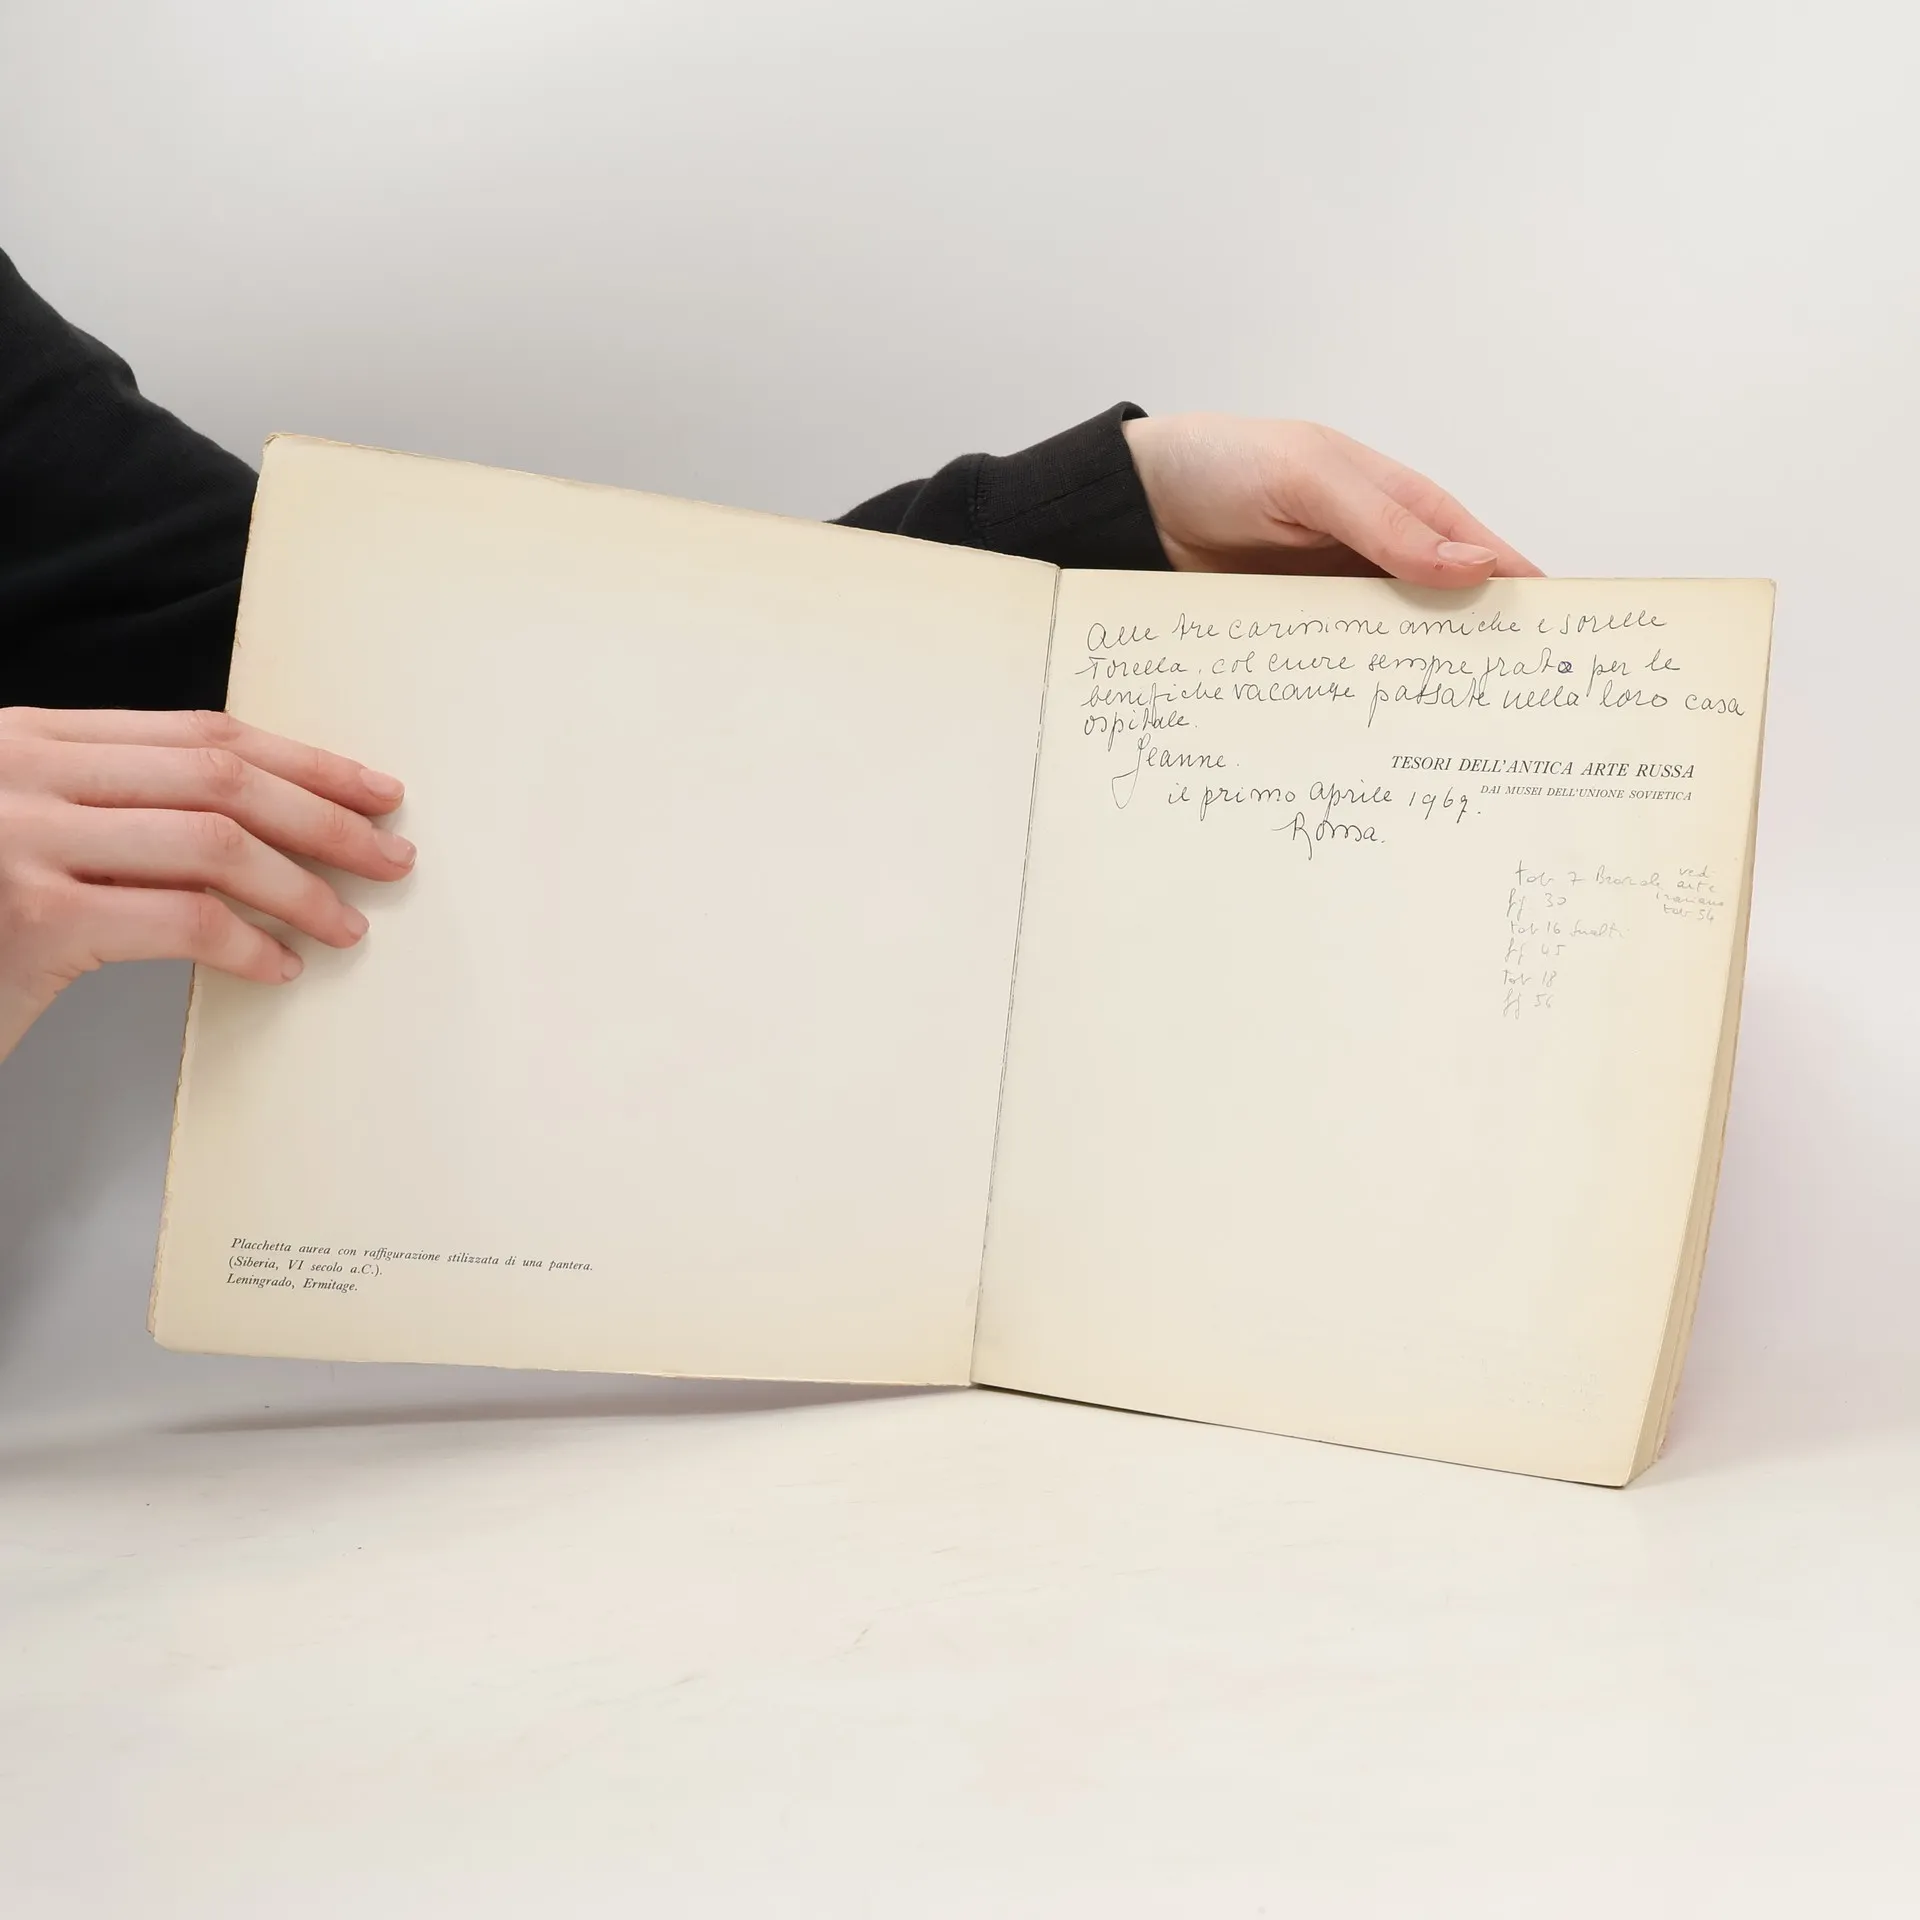 Placchetta aurea con raffigurazione stilizzata di una pantera.
(Siberia, VI secolo a.C.).
Leningrado, Ermitage.
Alle tre carissime amiche e sorelle
Torella, col cuore sempre grato per le
benefiche vacanze passate nella loro casa
ospitale.
Jeanne.
il primo Aprile 1967.
Roma.
TESORI DELL'ANTICA ARTE RUSSA
DAI MUSEI DELL'UNIONE SOVIETICA
tab 7
vedi
arte
iraniana
tab 54
fg 30
tab 16 Smalti
fg 45
tab 18
fg 56